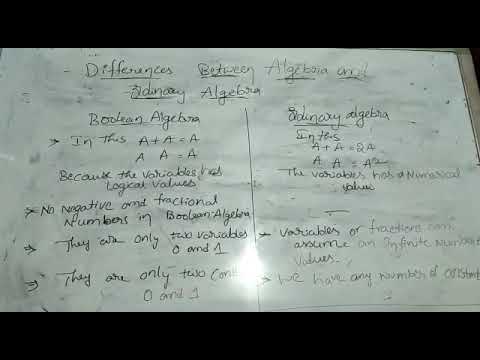 - Differences Between Algebra and
Ordinary Algebra
Boolean Algebra
→ In this A + A = A
A A = A
Because the variables has
Logical values
→ No negative and fractional
Numbers in Boolean-Algebra
→ They are only two variables
0 and 1
→ They are only two Cons
0 and 1
Ordinary algebra
In this
A + A = 2A
A A = A²
The variables has a Numerical
values
→ variables or fractions can
assume an Infinite Number
values.
→ we have any number of constant